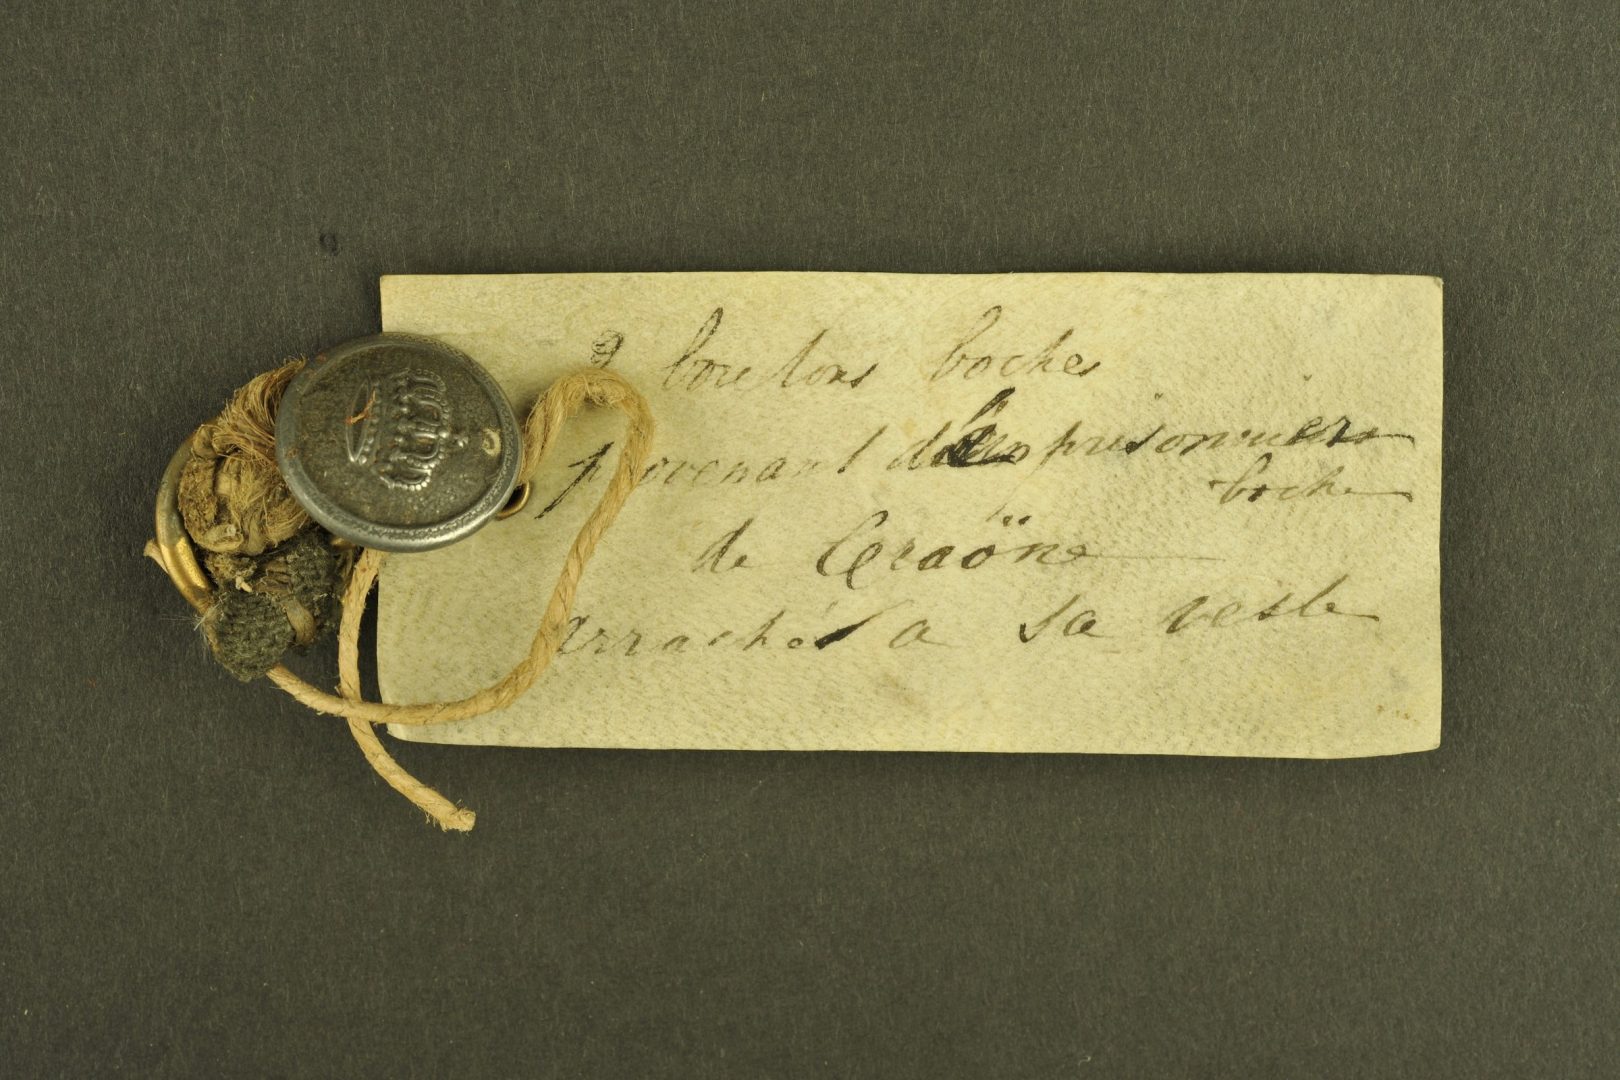 2 boutons boches
provenant d'un prisonnier
boche
de Craöne
arrachés a sa veste